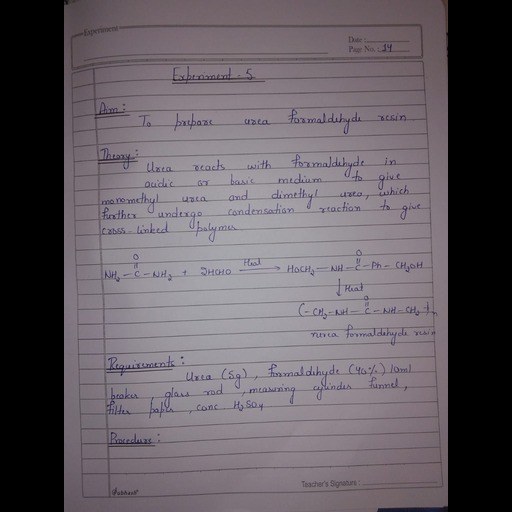 Experiment
Date :
Page No. : 24
Experiment - 5
Aim :
To prepare urea formaldehyde resin
Theory :
Urea reacts with formaldehyde in
acidic or basic medium to give
monomethyl urea and dimethyl urea, which
further undergo condensation reaction to give
cross-linked polymer
O
NH2 - C - NH2 + 2HCHO Heat HOCH2 - NH - C - Ph - CH2OH
O
↓ Heat
O
(- CH2 - NH - C - NH - CH2 +)n
urea formaldehyde resin
Requirements :
Urea (5g), formaldehyde (40%) 10ml
beaker, glass rod, measuring cylinder funnel,
filter paper, conc H2SO4
Procedure :
Teacher's Signature :